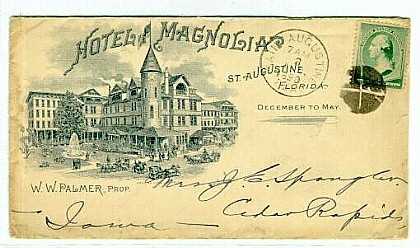 HOTEL MAGNOLIA
ST. AUGUSTINE,
FLORIDA
DECEMBER TO MAY.
ST. AUGUSTINE
7 AM
W. W. PALMER, PROP.
Mrs J. C. Spangler
Cedar Rapids
Iowa